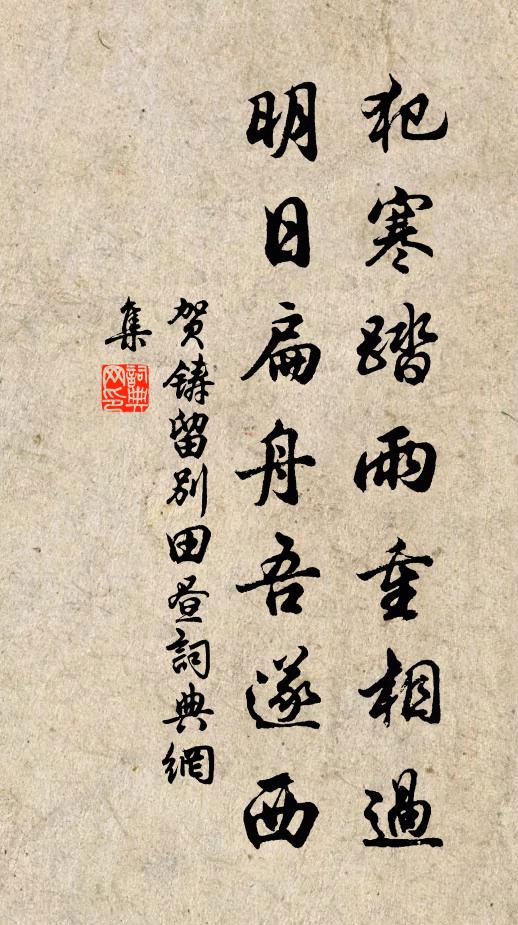 犯寒踏雨重相過
明日扁舟吾遂西
贺鑄留别田昼詞典網
集
詞典
网印